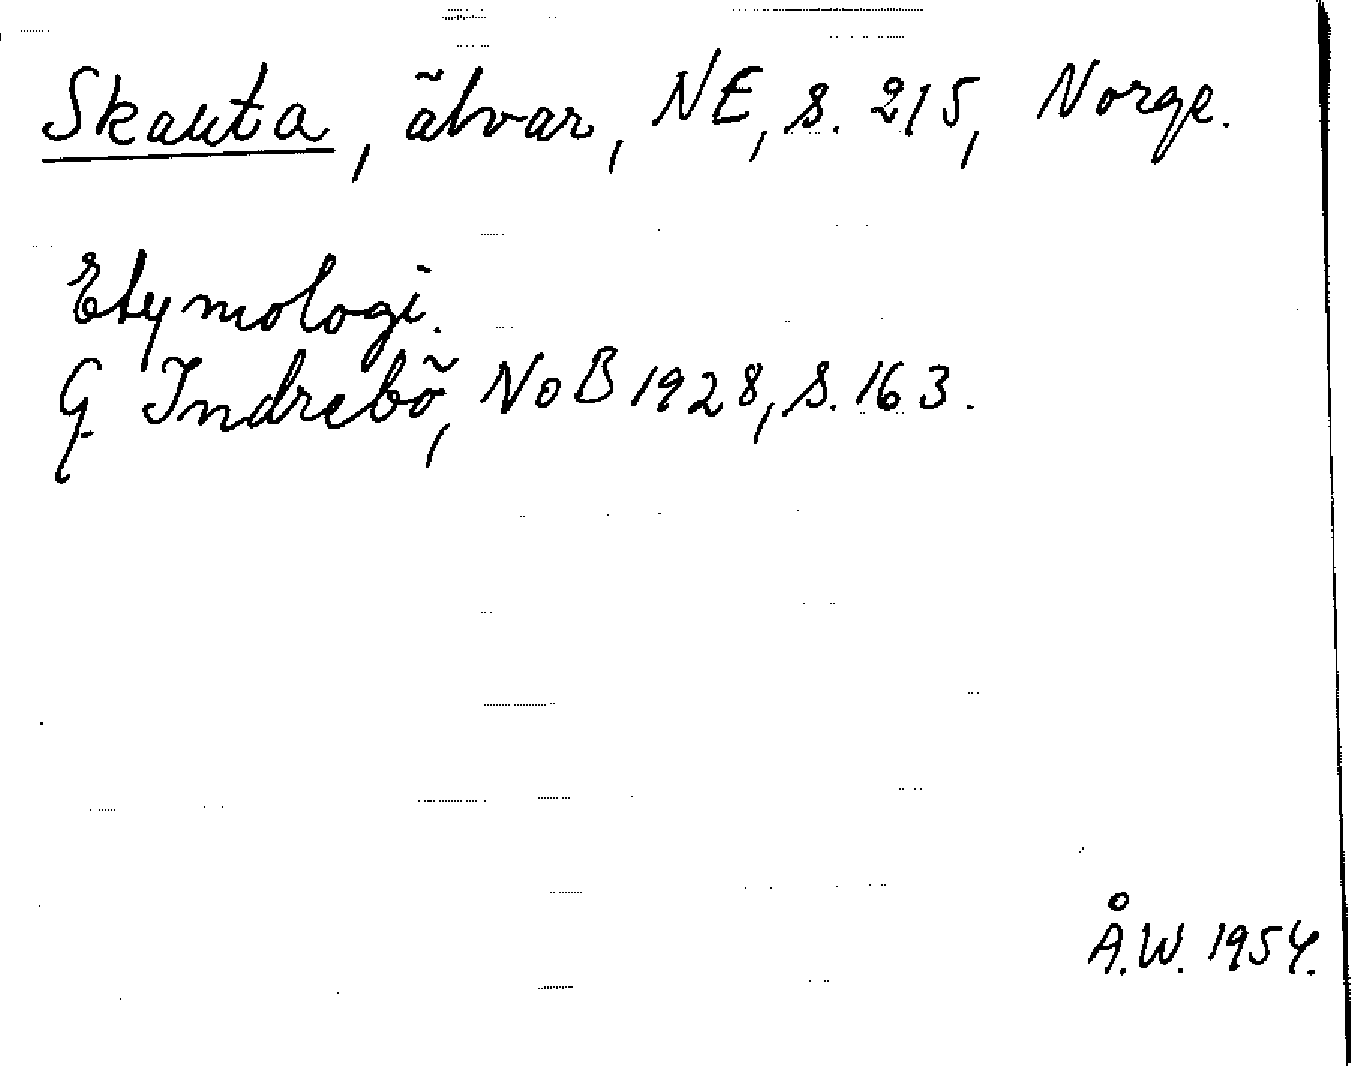 Skauta, älvar, NE, s. 215, Norge.
Etymologi.
G. Indrebö, NoB 1928, s. 163.
Å.W. 1954.